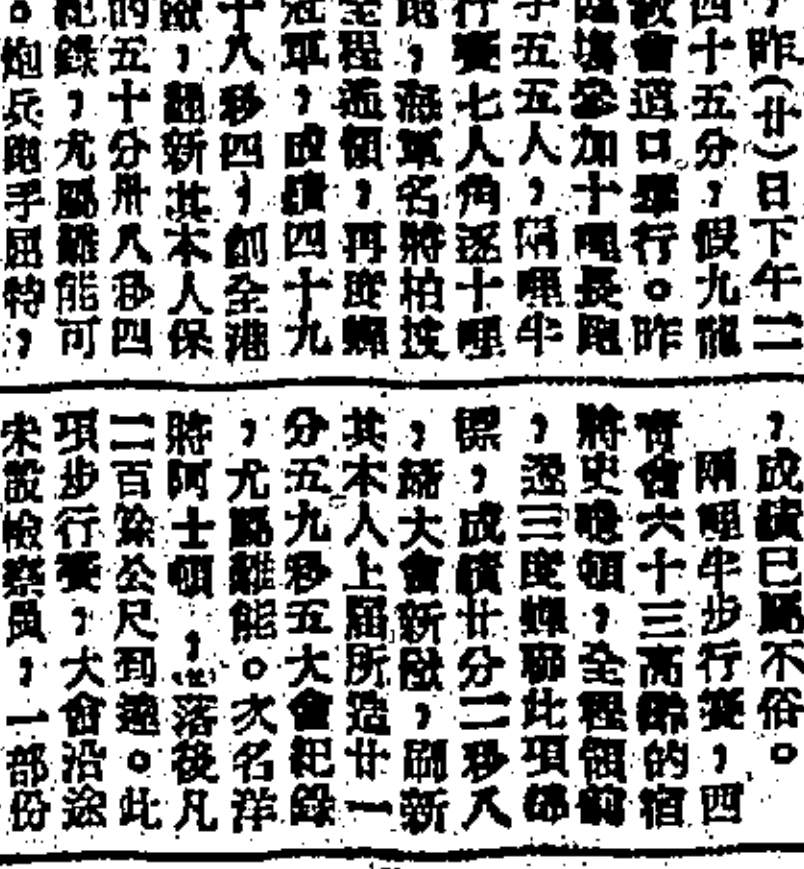 ，昨（廿）日下午二
四十五分，假九龍
教會道口舉行。昨
臨塲參加十哩長跑
手五五人，隔哩半
行賽七人角逐十哩
跑，海軍名將柏
全程遙領，再度蟬
冠軍，成績四十九
十八秒四，創全港
，翻新其本人保
的五十分卅八秒四
紀錄，尤屬難能可
。炮兵跑手屈特，
，成績已屬不俗。
哩半步行賽，四
會六十三高齡的宿
將史頓，全程領前
，遂三度蟬聯此項錦
標，成績廿分二秒八
，締大會新，刷新
其本人上屆所造廿一
分五九秒五大會紀錄
，尤屬難能。次名洋
將阿士頓，落後凡
二百餘公尺到達。此
項步行賽，大會沿途
未設檢察員，一部份